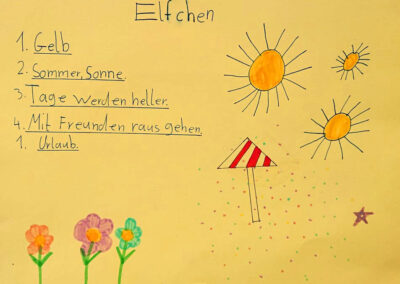 Elfchen
1. Gelb
2. Sommer, Sonne.
3. Tage werden heller.
4. Mit Freunden raus gehen.
1. Urlaub.